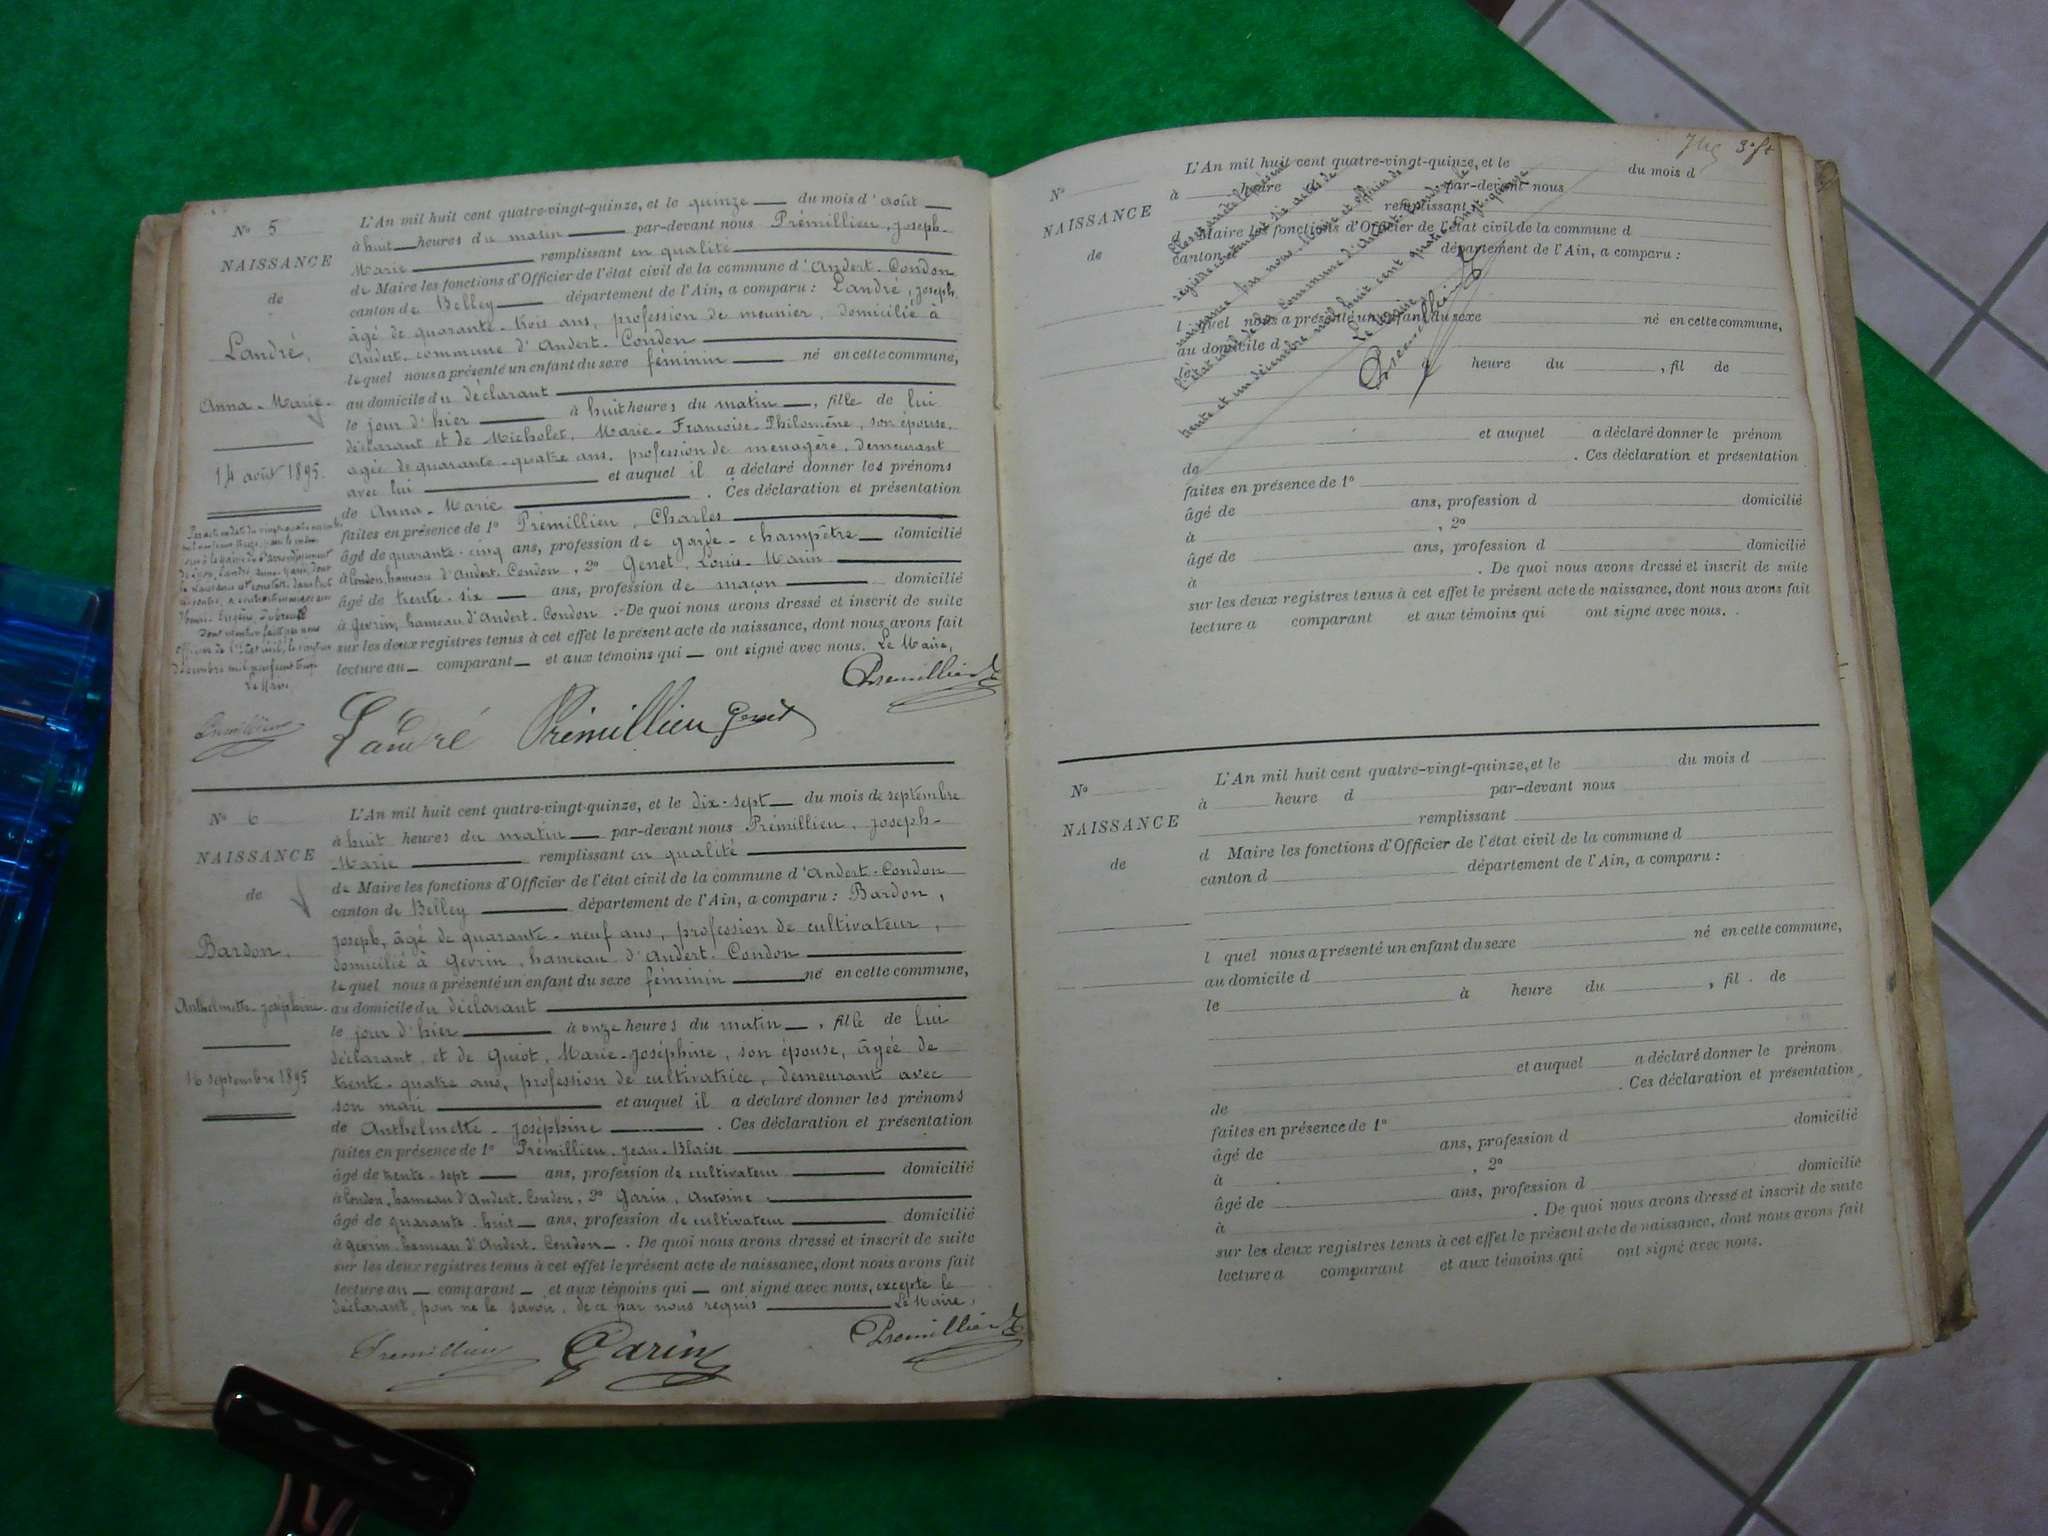 N° 5
NAISSANCE
de
Landré,
Anna-Marie
14 août 1895.
L'An mil huit cent quatre-vingt-quinze, et le quinze du mois d'août
à huit heures du matin par-devant nous Prémillieu, Joseph-
Marie remplissant en qualité
de Maire les fonctions d'Officier de l'état civil de la commune d'Andert-Condon
canton de Belley département de l'Ain, a comparu : Landré, Joseph,
âgé de quarante-trois ans, profession de meunier, domicilié à
Andert, commune d'Andert-Condon
lequel nous a présenté un enfant du sexe féminin né en cette commune,
au domicile du déclarant
le jour d'hier à huit heures du matin, fille de lui
déclarant et de Micholet, Marie-Françoise-Philomène, son épouse,
agée de quarante-quatre ans, profession de menagère, demeurant
avec lui et auquel il a déclaré donner les prénoms
de Anna-Marie. Ces déclaration et présentation
faites en présence de 1° Prémillieu, Charles
âgé de quarante-cinq ans, profession de garde-champêtre domicilié
à Condon, hameau d'Andert-Condon, 2° Genet, Louis-Marin
âgé de trente-six ans, profession de maçon domicilié
à Gevrin, hameau d'Andert-Condon. De quoi nous avons dressé et inscrit de suite
sur les deux registres tenus à cet effet le présent acte de naissance, dont nous avons fait
lecture au comparant et aux témoins qui ont signé avec nous. Le Maire,
Prémillieu
Landré Prémillieu Genet
Prémillieu
N° 6
NAISSANCE
de
Bardon,
Anthelmette-Joséphine
16 septembre 1895
L'An mil huit cent quatre-vingt-quinze, et le dix-sept du mois de septembre
à huit heures du matin par-devant nous Prémillieu, Joseph-
Marie remplissant en qualité
de Maire les fonctions d'Officier de l'état civil de la commune d'Andert-Condon
canton de Belley département de l'Ain, a comparu : Bardon,
Joseph, âgé de quarante-neuf ans, profession de cultivateur,
domicilié à Gevrin, hameau d'Andert-Condon
lequel nous a présenté un enfant du sexe féminin né en cette commune,
au domicile du déclarant
le jour d'hier à onze heures du matin, fille de lui
déclarant, et de Guiot, Marie-Joséphine, son épouse, âgée de
trente-quatre ans, profession de cultivatrice, demeurant avec
son mari et auquel il a déclaré donner les prénoms
de Anthelmette-Joséphine. Ces déclaration et présentation
faites en présence de 1° Prémillieu, Jean-Blaise
âgé de trente-sept ans, profession de cultivateur domicilié
à Condon, hameau d'Andert-Condon, 2° Garin, Antoine
âgé de quarante-huit ans, profession de cultivateur domicilié
à Gevrin, hameau d'Andert-Condon. De quoi nous avons dressé et inscrit de suite
sur les deux registres tenus à cet effet le présent acte de naissance, dont nous avons fait
lecture au comparant et aux témoins qui ont signé avec nous, excepté le
déclarant, pour ne le savoir, de ce par nous requis Le Maire,
Premillieu Garin Prémillieu
3e ft
N°
NAISSANCE
de
L'An mil huit cent quatre-vingt-quinze, et le du mois d
à heure d par-devant nous
remplissant
d Maire les fonctions d'Officier de l'état civil de la commune d
canton d département de l'Ain, a comparu :
l quel nous a présenté un enfant du sexe né en cette commune,
au domicile d
le à heure du , fil de
et auquel a déclaré donner le prénom
de . Ces déclaration et présentation
faites en présence de 1°
âgé de ans, profession d domicilié
à , 2°
âgé de ans, profession d domicilié
à . De quoi nous avons dressé et inscrit de suite
sur les deux registres tenus à cet effet le présent acte de naissance, dont nous avons fait
lecture a comparant et aux témoins qui ont signé avec nous.
Clos et arrêté le présent
registre contenant six actes de
naissance par nous Maire et officier de
l'état civil de la commune d'Andert-Condon le
trente et un décembre mil huit cent quatre-vingt-quinze
Le Maire,
Prémillieu
N°
NAISSANCE
de
L'An mil huit cent quatre-vingt-quinze, et le du mois d
à heure d par-devant nous
remplissant
d Maire les fonctions d'Officier de l'état civil de la commune d
canton d département de l'Ain, a comparu :
l quel nous a présenté un enfant du sexe né en cette commune,
au domicile d
le à heure du , fil de
et auquel a déclaré donner le prénom
de . Ces déclaration et présentation
faites en présence de 1°
âgé de ans, profession d domicilié
à , 2°
âgé de ans, profession d domicilié
à . De quoi nous avons dressé et inscrit de suite
sur les deux registres tenus à cet effet le présent acte de naissance, dont nous avons fait
lecture a comparant et aux témoins qui ont signé avec nous.